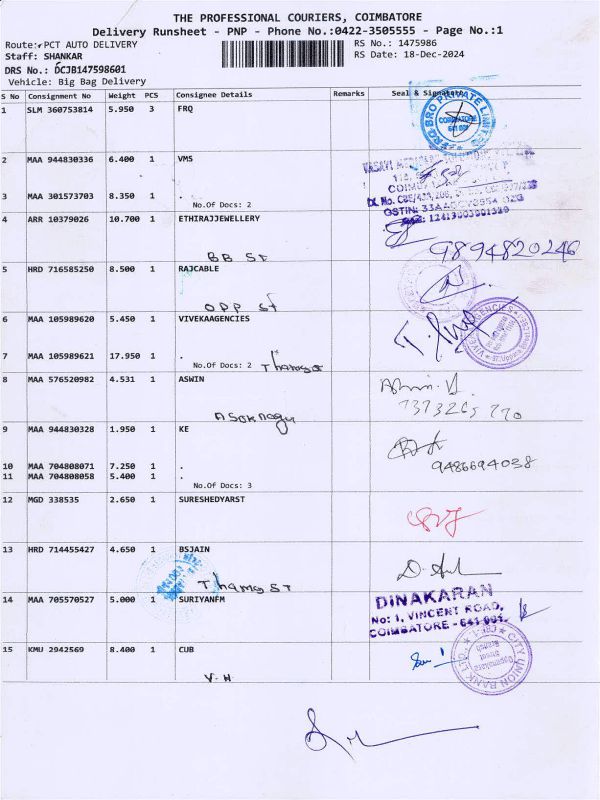 THE PROFESSIONAL COURIERS, COIMBATORE
Delivery Runsheet - PNP - Phone No.:0422-3505555 - Page No.:1
Route: PCT AUTO DELIVERY RS No.: 1475986
Staff: SHANKAR RS Date: 18-Dec-2024
DRS No.: DCJB147598601
Vehicle: Big Bag Delivery
S No Consignment No Weight PCS Consignee Details Remarks Seal & Signature
1 SLM 360753814 5.950 3 FRQ
COIMBATORE
2 MAA 944830336 6.400 1 VMS
3 MAA 301573703 8.350 1 .
No.Of Docs: 2
4 ARR 10379026 10.700 1 ETHIRAJJEWELLERY
BB ST
9894820246
5 HRD 716585250 8.500 1 RAJCABLE
OPP ST
6 MAA 105989620 5.450 1 VIVEKAAGENCIES
7 MAA 105989621 17.950 1 .
No.Of Docs: 2
8 MAA 576520982 4.531 1 ASWIN
7373265770
9 MAA 944830328 1.950 1 KE
9486694038
10 MAA 704808071 7.250 1 .
11 MAA 704808058 5.400 1 .
No.Of Docs: 3
12 MGD 338535 2.650 1 SURESHEDYARST
13 HRD 714455427 4.650 1 BSJAIN
14 MAA 705570527 5.000 1 SURIYANFM
DINAKARAN
No: 1, VINCENT ROAD,
COIMBATORE - 641 001.
15 KMU 2942569 8.400 1 CUB
CITY UNION BANK LTD.
V.H